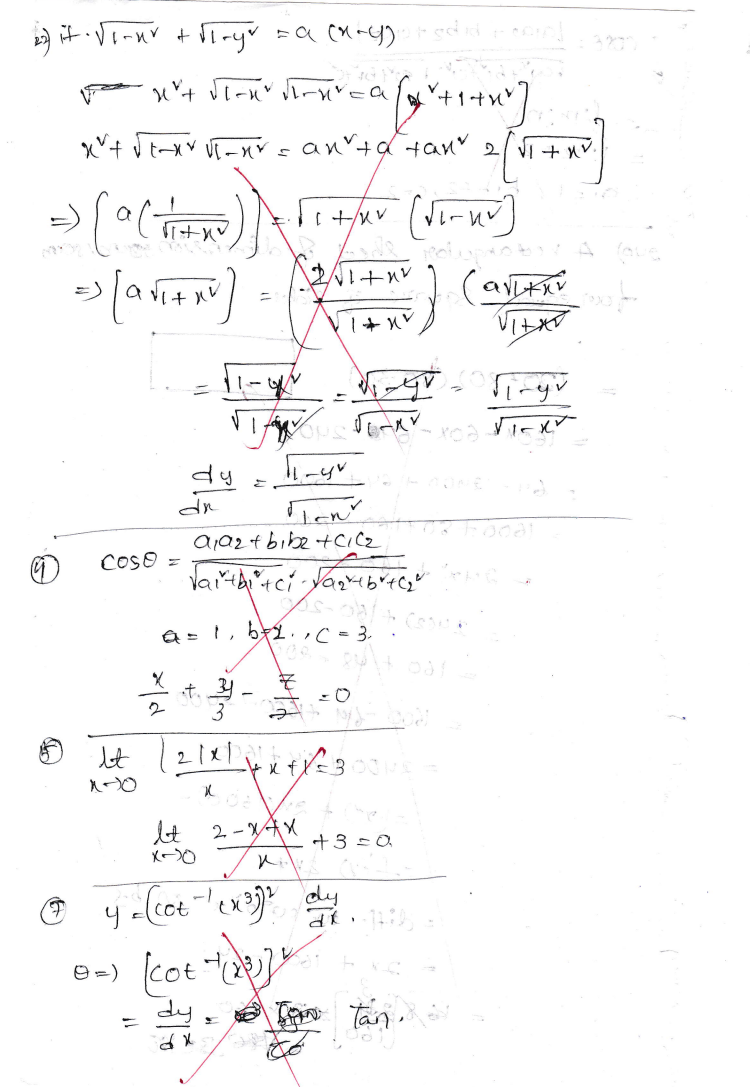 22) if √1-x² + √1-y² = a (x-y)
x² + √1-x² √1-x² = a [x² + 1 + x²]
x² + √1-x² √1-x² = ax² + a + ax² 2 [√1+x²]
=> [a (1/√1+x²)] = √1+x² [√1-x²]
=> [a √1+x²] = (2 √1+x² / √1+x²) (a√1+x² / √1+x²)
= √1-y² / √1-y² = √1-y² / √1-x² = √1-y² / √1-x²
dy/dx = √1-y² / √1-x²
4) cosθ = a1a2 + b1b2 + c1c2 / √a1²+b1²+c1² · √a2²+b²+c2²
a = 1, b=2., c = 3.
x/2 + 3y/3 - z/2 = 0
5) lt x→0 | 2|x|/x + x + 1 = 3
lt x→0 2-x+x/x + 3 = 0
7) y = (cot⁻¹(x³))² dy/dx.
θ=) [cot⁻¹(x³)]²
= dy/dx = Tan.